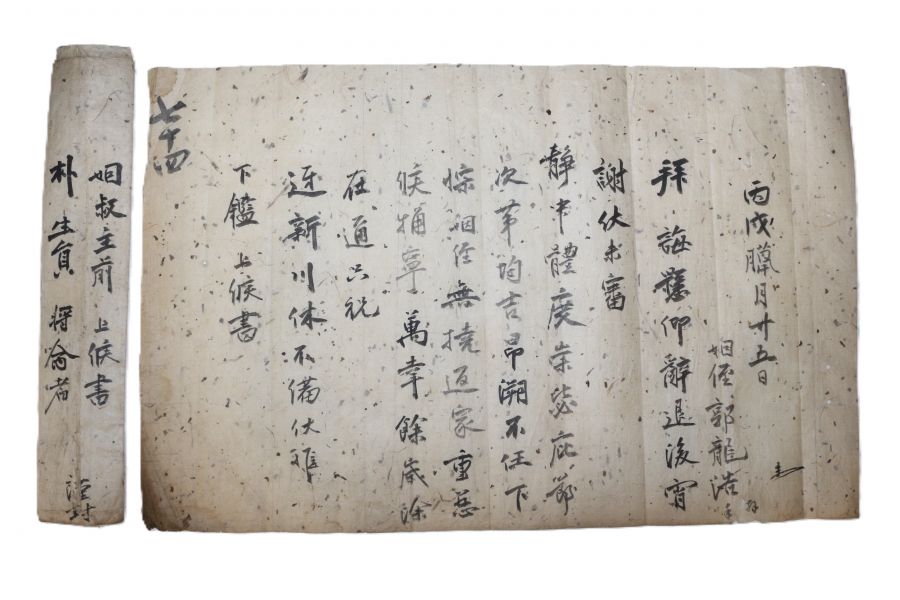 丙戌臘月廿五日
姻侄郭龍浩
拜 誨鬱仰辭退後宵
謝伏未審
靜中體度崇毖庇節
次第均吉昂溯不任下
悰姻侄無撓返家重慈
候 寧萬幸餘歲除
在通只祝
迓新川休不備伏惟
下鑑 上候書
七十四
姻叔主前 上候書
朴生員 將命者
謹封